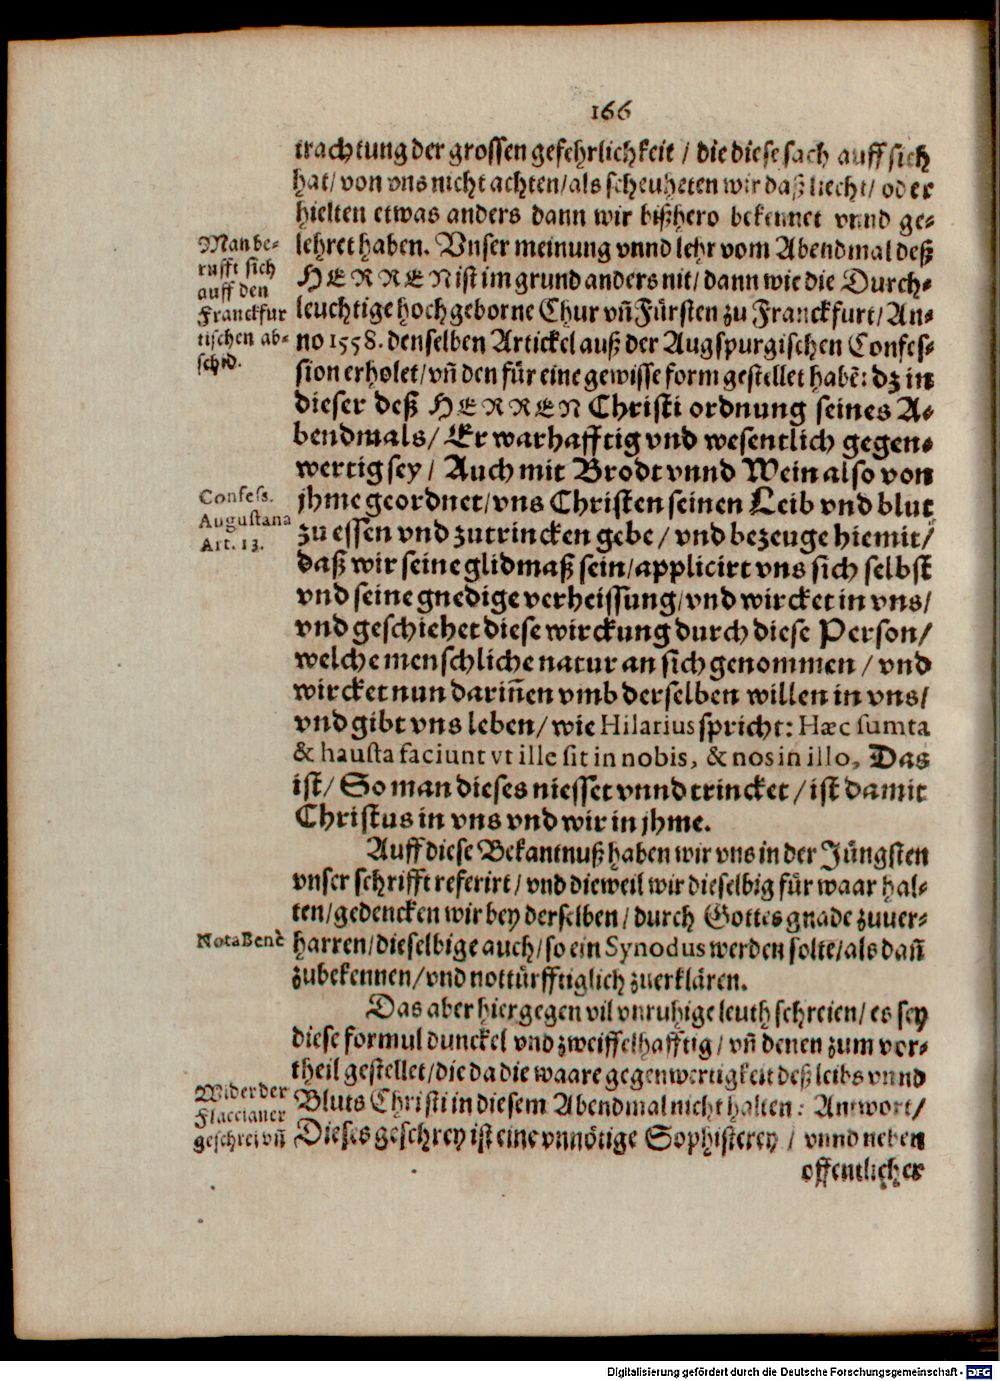 166
trachtung der grossen gefehrlichkeit / die diese sach auff sich
hat/ von vns nicht achten/ als scheuheten wir daß liecht/ oder
hielten etwas anders dann wir bißhero bekennet vnnd ge-
lehret haben. Vnser meinung vnnd lehr vom Abendmal deß
HERREN ist im grund anders nit/ dann wie die Durch-
leuchtige hochgeborne Chur vñ Fürsten zu Franckfurt/ An-
no 1558. denselben Artickel auß der Augspurgischen Confes-
sion erholet/ vñ den für eine gewisse form gestellet habẽ: dz in
dieser deß HERREN Christi ordnung seines A-
bendmals/ Er warhafftig vnd wesentlich gegen-
wertig sey / Auch mit Brodt vnnd Wein also von
jhme geordnet/ vns Christen seinen Leib vnd blut
zu essen vnd zutrincken gebe / vnd bezeuge hiemit/
daß wir seine glidmaß sein/ applicirt vns sich selbst
vnd seine gnedige verheissung/ vnd wircket in vns/
vnd geschiehet diese wirckung durch diese Person/
welche menschliche natur an sich genommen / vnd
wircket nun dariñen vmb derselben willen in vns/
vnd gibt vns leben/ wie Hilarius spricht: Hæc sumta
& hausta faciunt vt ille sit in nobis, & nos in illo, Das
ist/ So man dieses niesset vnnd trincket / ist damit
Christus in vns vnd wir in jhme.
Auff diese Bekantnuß haben wir vns in der Jüngsten
vnser schrifft referirt/ vnd dieweil wir dieselbig für waar hal-
ten/ gedencken wir bey derselben/ durch Gottes gnade zuuer-
harren/ dieselbige auch/ so ein Synodus werden solte/ als dañ
zubekennen/ vnd nottürfftiglich zuerklären.
Das aber hiergegen vil vnruhige leuth schreien/ es sey
diese formul dunckel vnd zweiffelhafftig / vñ denen zum vor-
theil gestellet/ die da die waare gegenwertigkeit deß leibs vnnd
Bluts Christi in diesem Abendmal nicht halten: Antwort/
Dieses geschrey ist eine vnnötige Sophisterey / vnnd neben
offentlicher
Man be-
rufft sich
auff den
Franckfur
tischen ab-
schid.
Confess.
Augustana
Art. 13.
Nota Bene
Wider der
Flaccianer
geschrei vñ
Digitalisierung gefördert durch die Deutsche Forschungsgemeinschaft - DFG